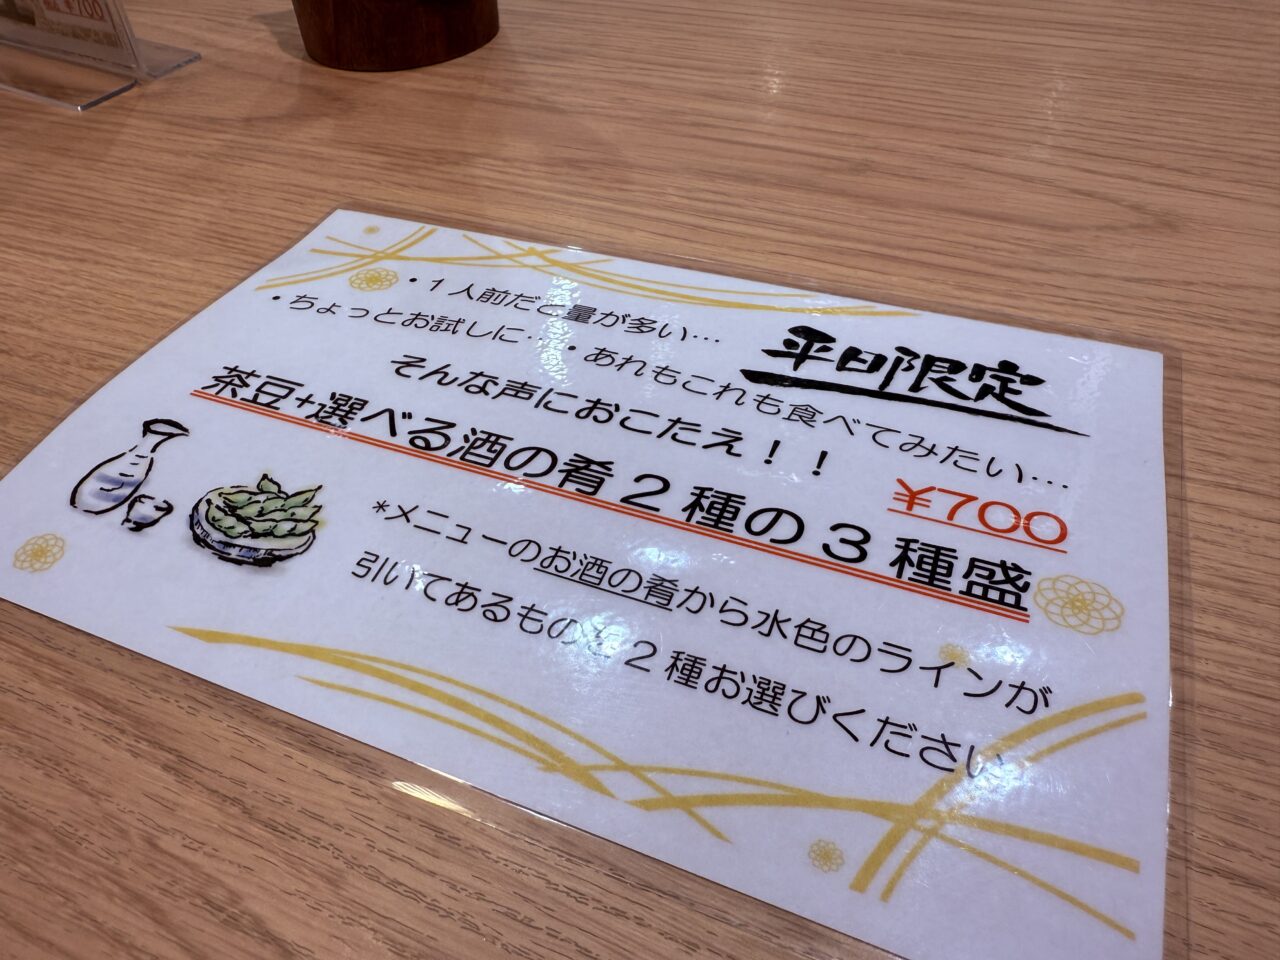 ・１人前だと量が多い…
・ちょっとお試しに…・あれもこれも食べてみたい…
平日限定
そんな声におこたえ！！
¥700
茶豆+選べる酒の肴２種の３種盛
*メニューのお酒の肴から水色のラインが
引いてあるものを２種お選びください
¥700